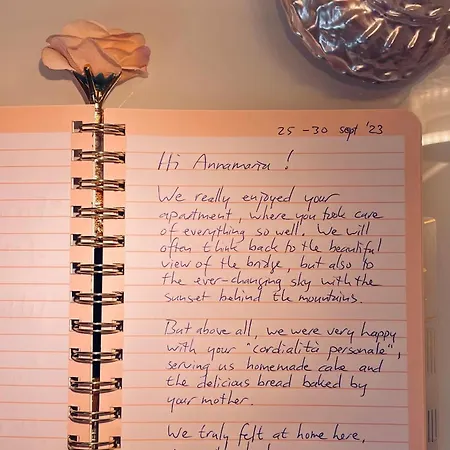 25 - 30 sept '23
Hi Annamaria !
We really enjoyed your
apartment, where you took care
of everything so well. We will
often think back to the beautiful
view of the bridge, but also to
the ever-changing sky with the
sunset behind the mountains.
But above all, we were very happy
with your "cordialità personale",
serving us homemade cake and
the delicious bread baked by
your mother.
We truly felt at home here,